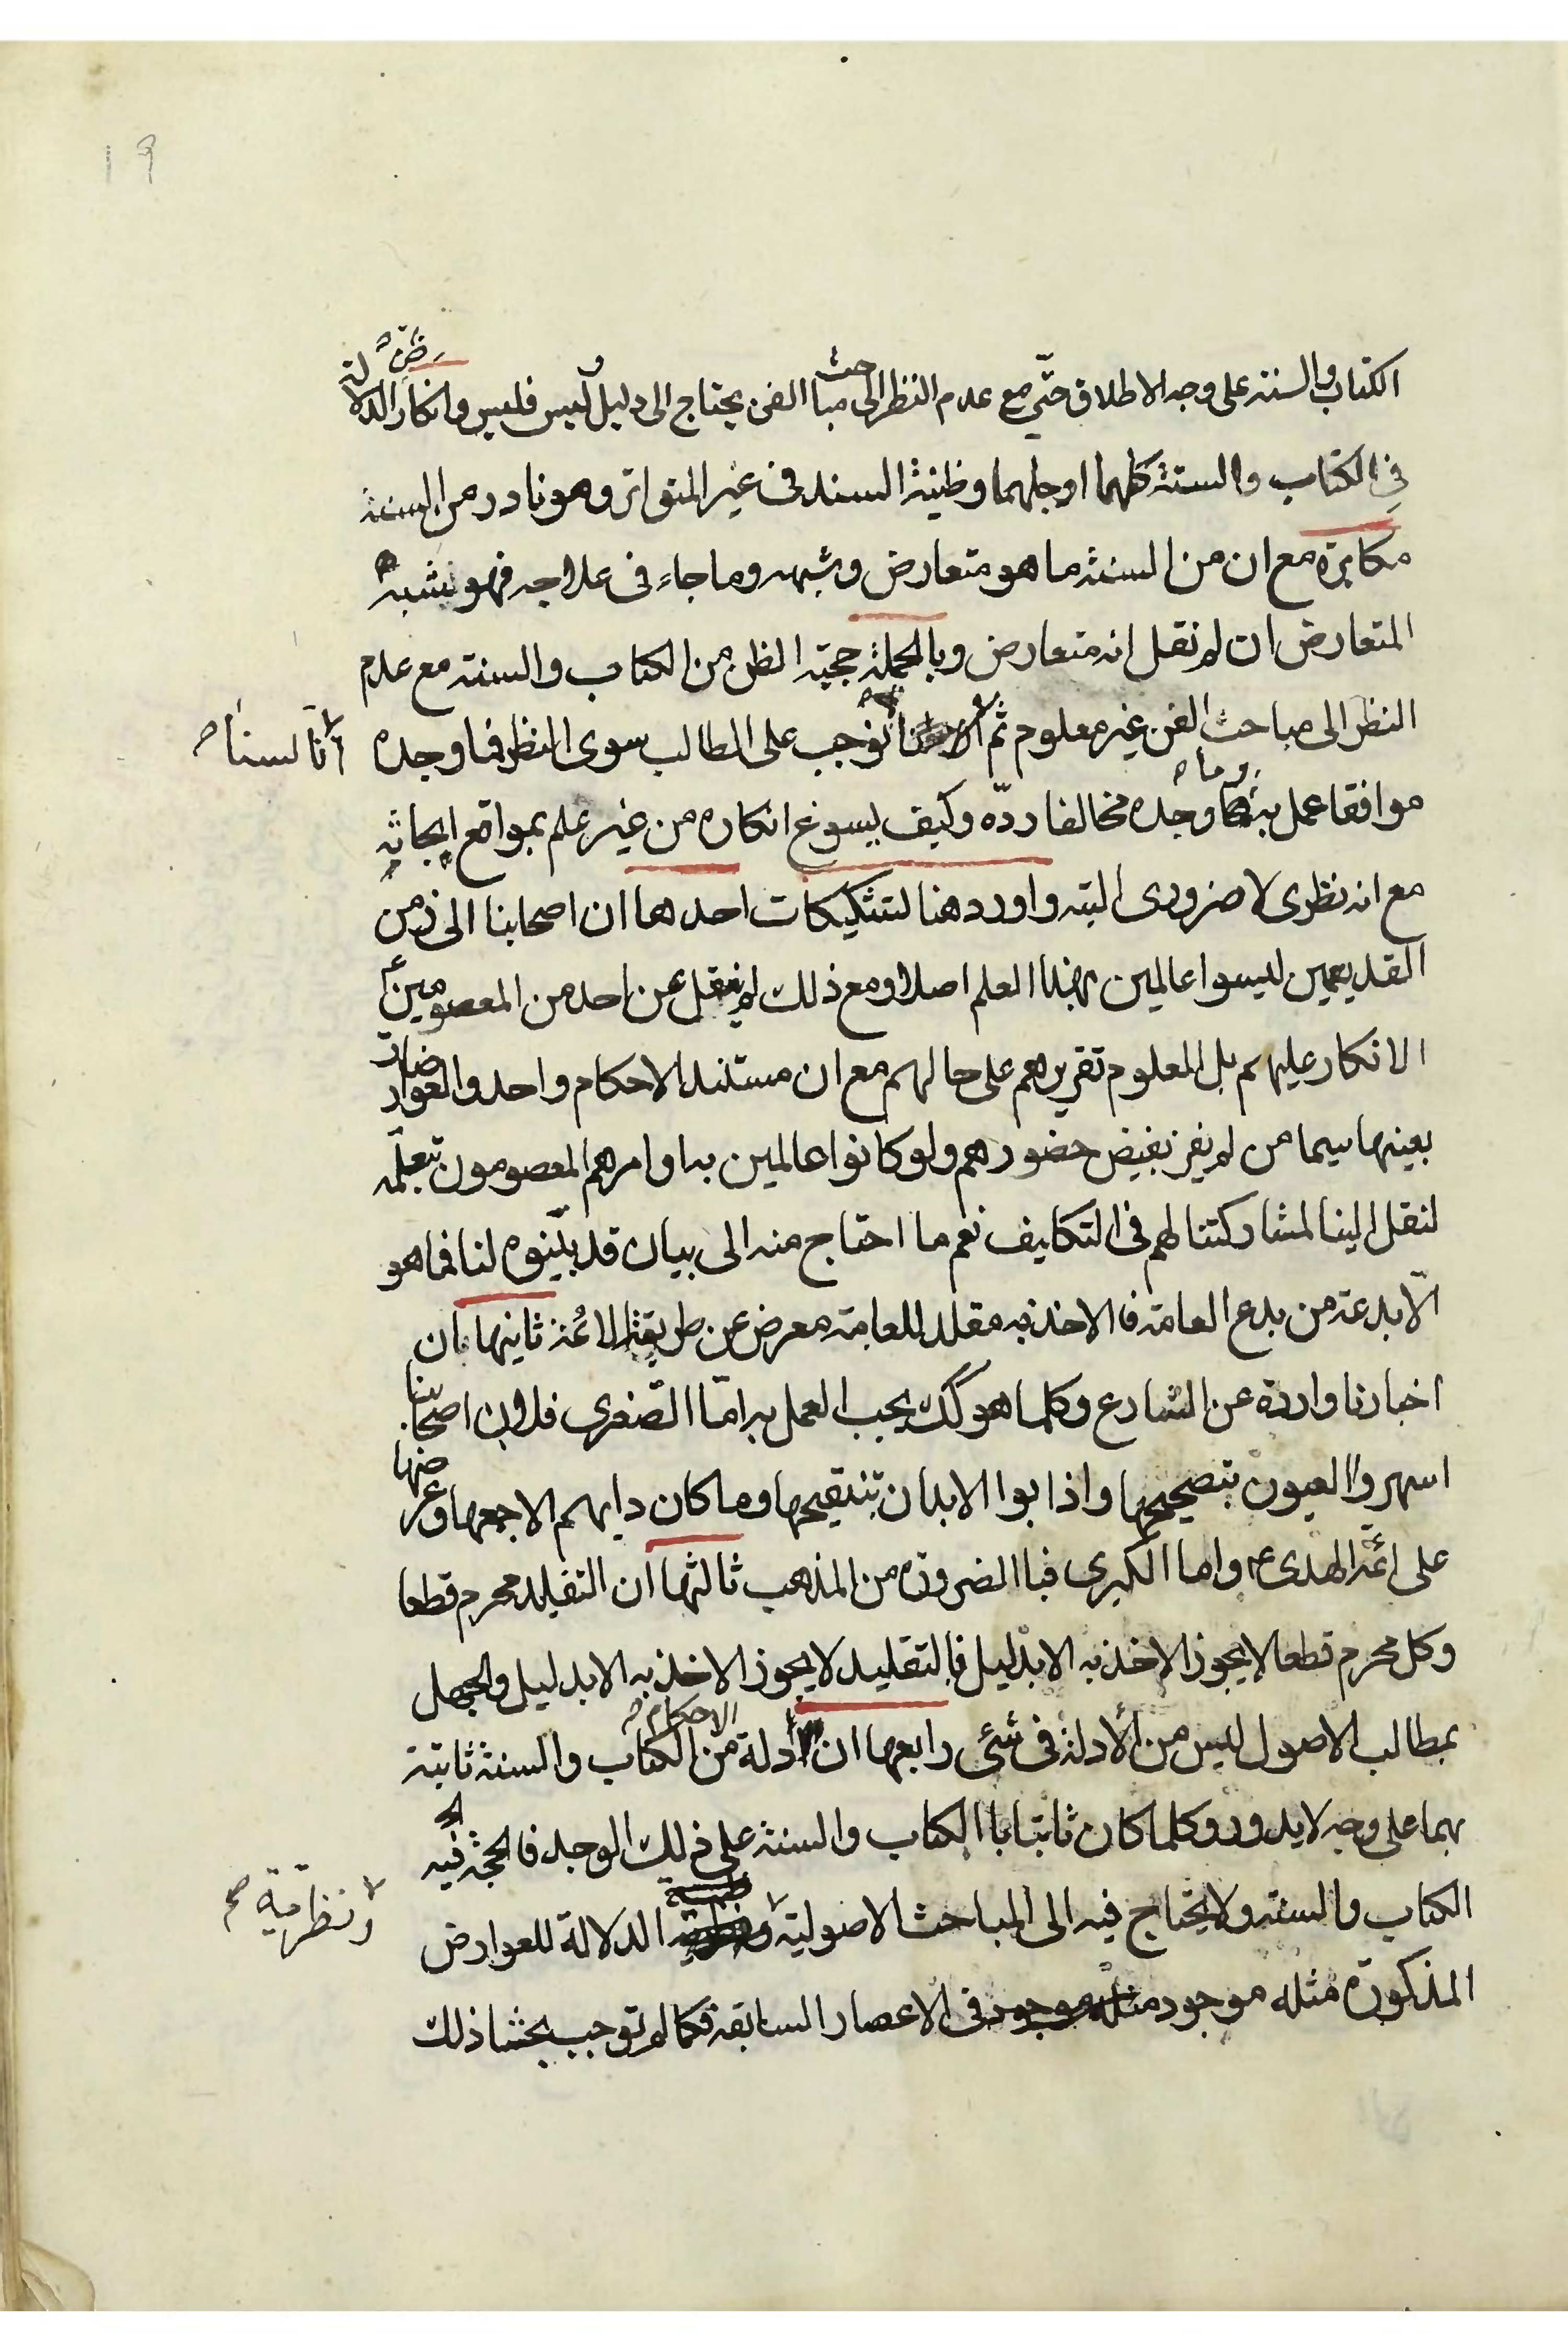 ١٩
الكتاب والسنة على وجه الاطلاق حتّى مع عدم النظر الى مباحث الفن يحتاج الى دليل وليس فليس وانكار الدلالة
في الكتاب والسنة كلهما او جلهما وظنية السند فى غير المتواتر وهو نادر من السنة
مكابرة مع ان من السنة ما هو متعارض وشبهه وما جاء فى علاجه فهو يشبه
المتعارض ان لم نقل انه متعارض وبالجملة حجية الظن من الكتاب والسنة مع عدم
النظر الى مباحث الفن غير معلوم ثم انا لسنا نوجب على الطالب سوى النظر فما وجده
موافقا عمل به وما وجده مخالفا ردّه وكيف يسوغ انكاره من غير علم بمواقع ابحاثه
مع انه نظرى لا ضرورى البته واورد هنا لتشكيكات احدها ان اصحابنا الى زمن
القديمين ليسوا عالمين بهذا العلم اصلا ومع ذلك لم ينقل عن احد من المعصومين ع
الانكار عليهم بل المعلوم تقريرهم على حالهم مع ان مستند الاحكام واحد والعوارضات
بعينها سيما من لم يفز بفيض حضورهم ولو كانوا عالمين به اوامرهم المعصومون بتعلّمه
لنقل الينا لمشاركتنا لهم فى التكايف نعم ما احتاج منه الى بيان قد بيّنوه لنا فما هو
الّا بدعة من بدع العامة فالاخذ به مقلد للعامة معرض عن طريقة الائمة ثانيها ان
اخبارنا واردة عن الشارع وكلما هو كك يجب العمل به امّا الصّغرى فلان اصحابنا
اسهروا العيون بتصحيحها واذابوا الابدان بتنقيحها وما كان دابهم الا جمعها وعرضها
على ائمّة الهدى ع واما الكبرى فباالضرورة من المذهب ثالثها ان التقليد محرم قطعا
وكل محرم قطعا لا يجوز الاخذ به الا بدليل فالتقليد لا يجوز الاخذ به الا بدليل والجهل
بمطالب الاصول ليس من الأدلة فى شئ رابعها ان ادلة الاحكام من الكتاب والسنة ثابتة
بهما على وجه لا يدور وكلما كان ثابتا باالكتاب والسنة على ذلك الوجه فالحجة فيه
الكتاب والسنة ولا يحتاج فيه الى المباحث الاصولية ونظرية الدلالة للعوارض
المذكورة مثله موجود فى الاعصار السابقة فكما لم توجب بحثنا ذلك